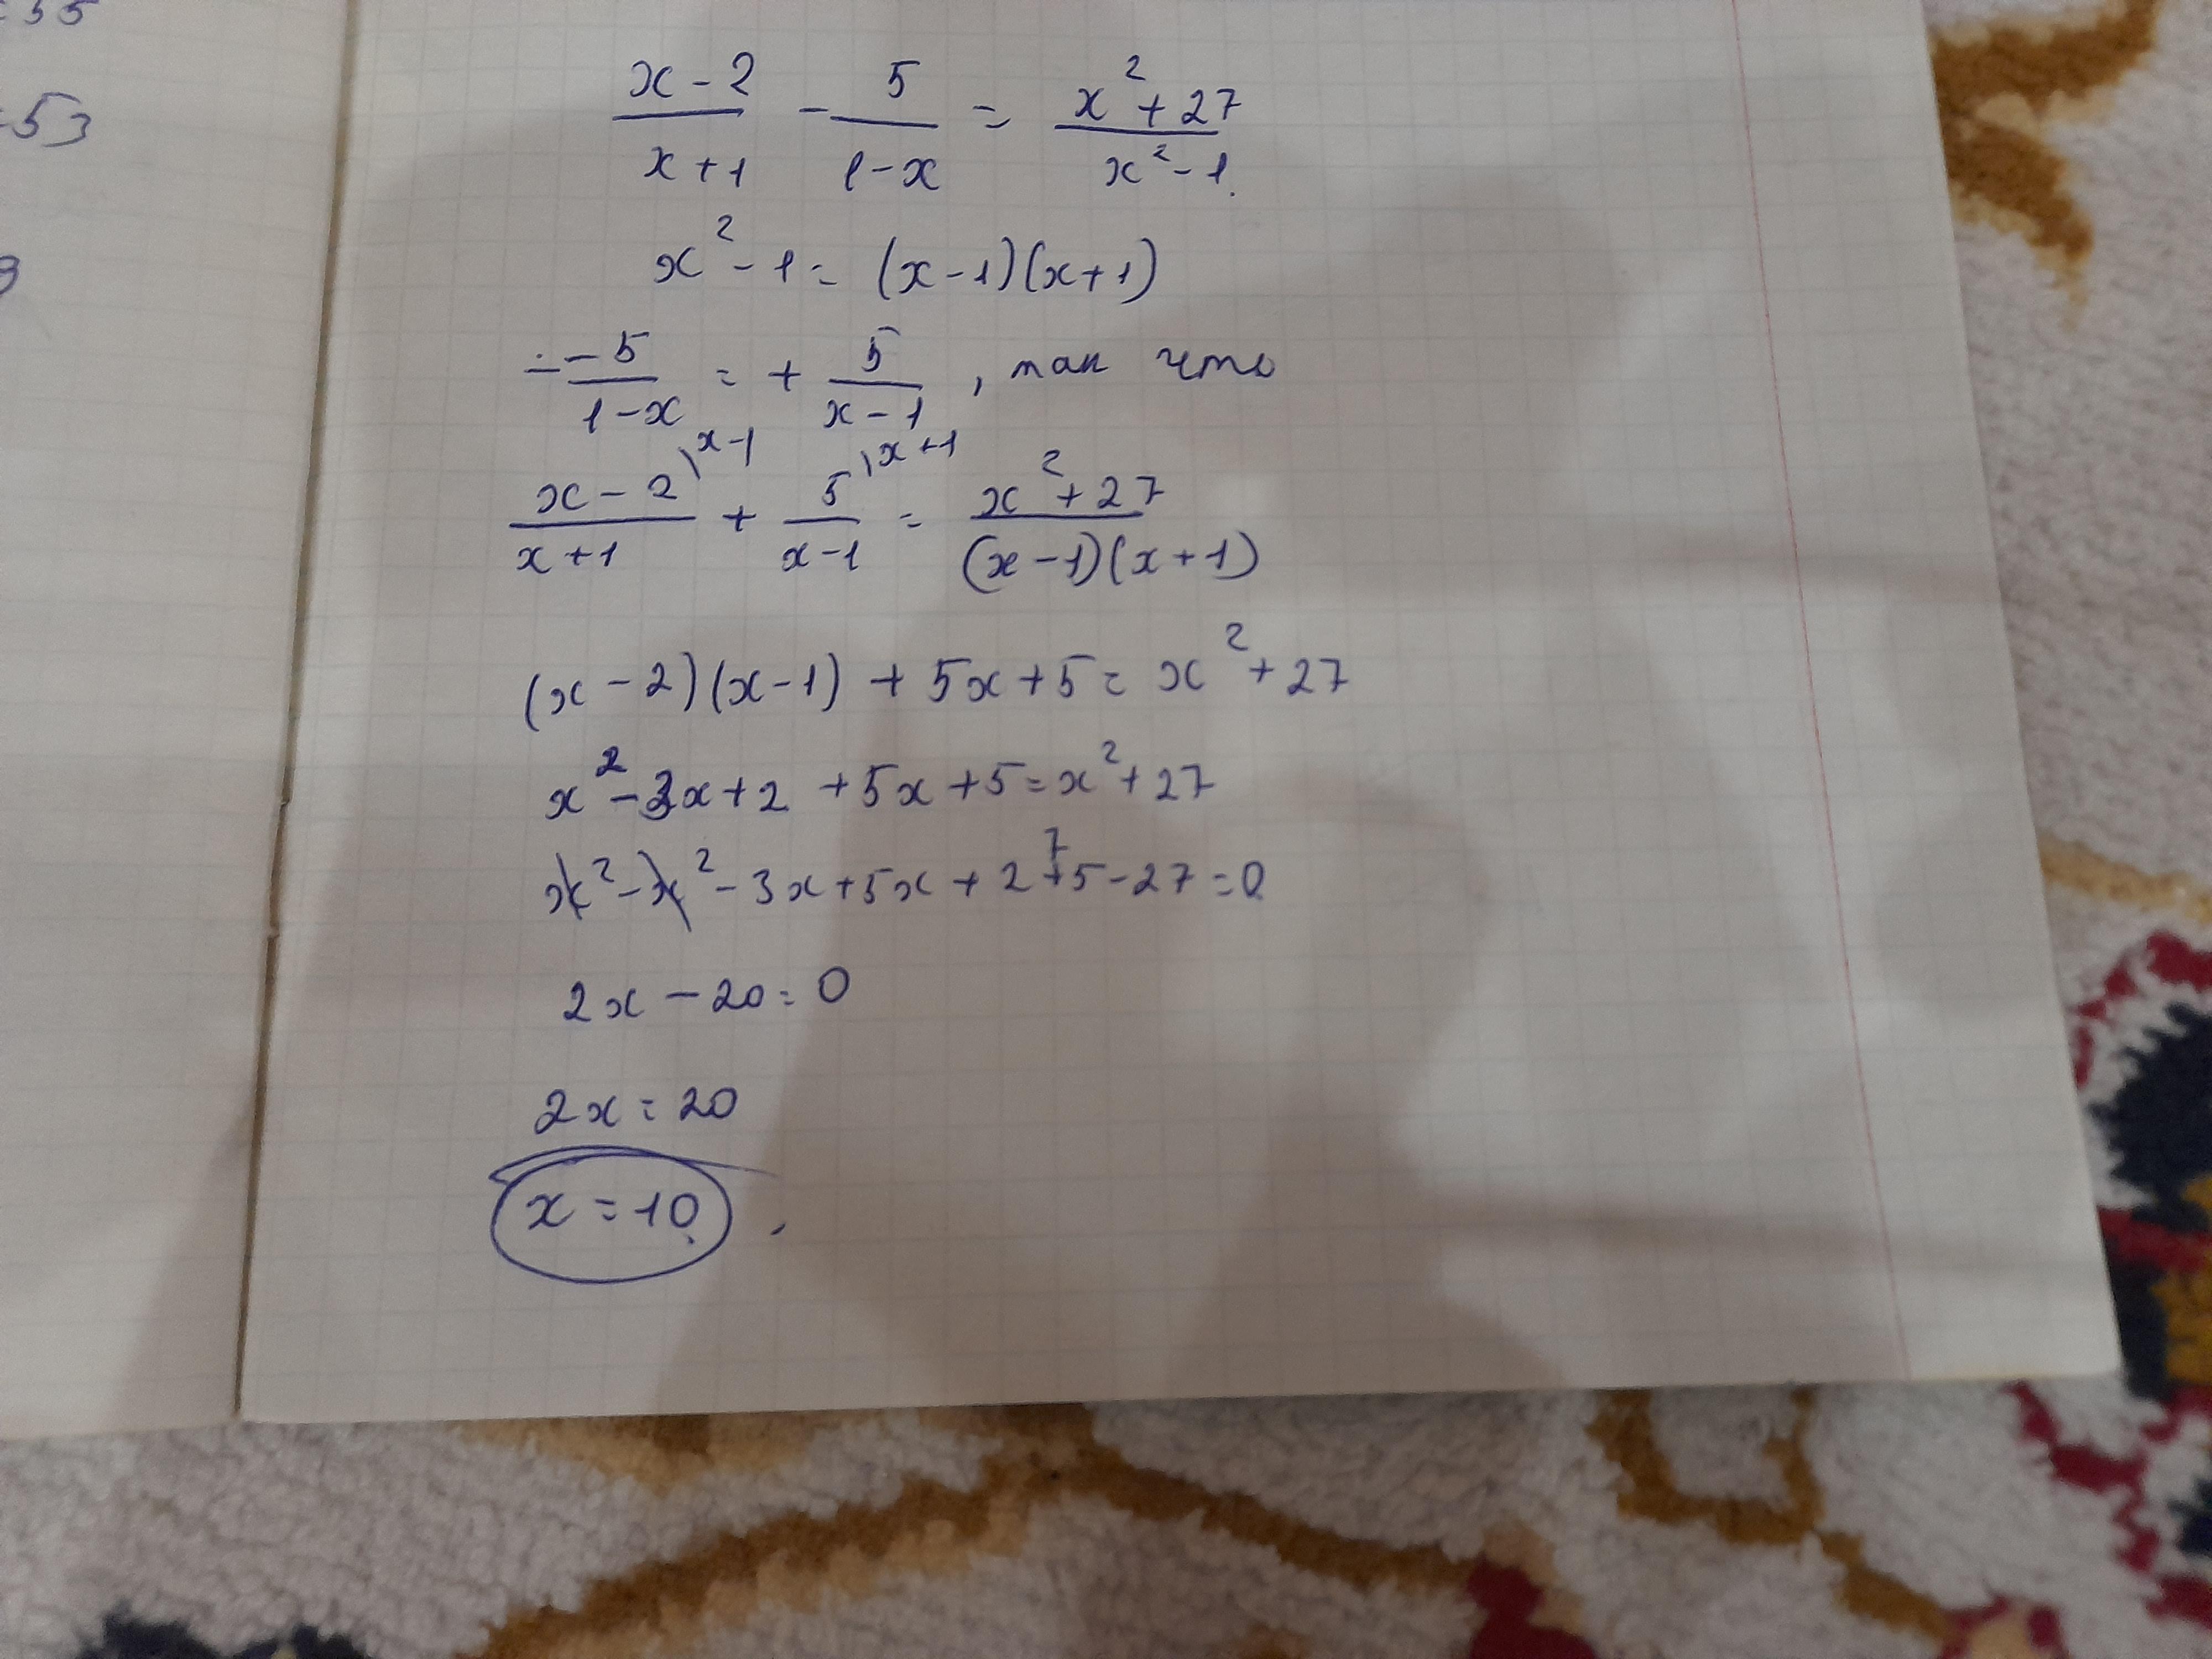 35
-53
x-2/x+1 - 5/1-x = x²+27/x²-1.
x²-1 = (x-1)(x+1)
- -5/1-x = + 5/x-1, так что
x-2\x-1/x+1 + 5\x+1/x-1 = x²+27/(x-1)(x+1)
(x-2)(x-1) + 5x+5 = x²+27
x²-3x+2 +5x+5=x²+27
x²-x²-3x+5x+2+5-27=0
7
2x-20=0
2x=20
x=10.